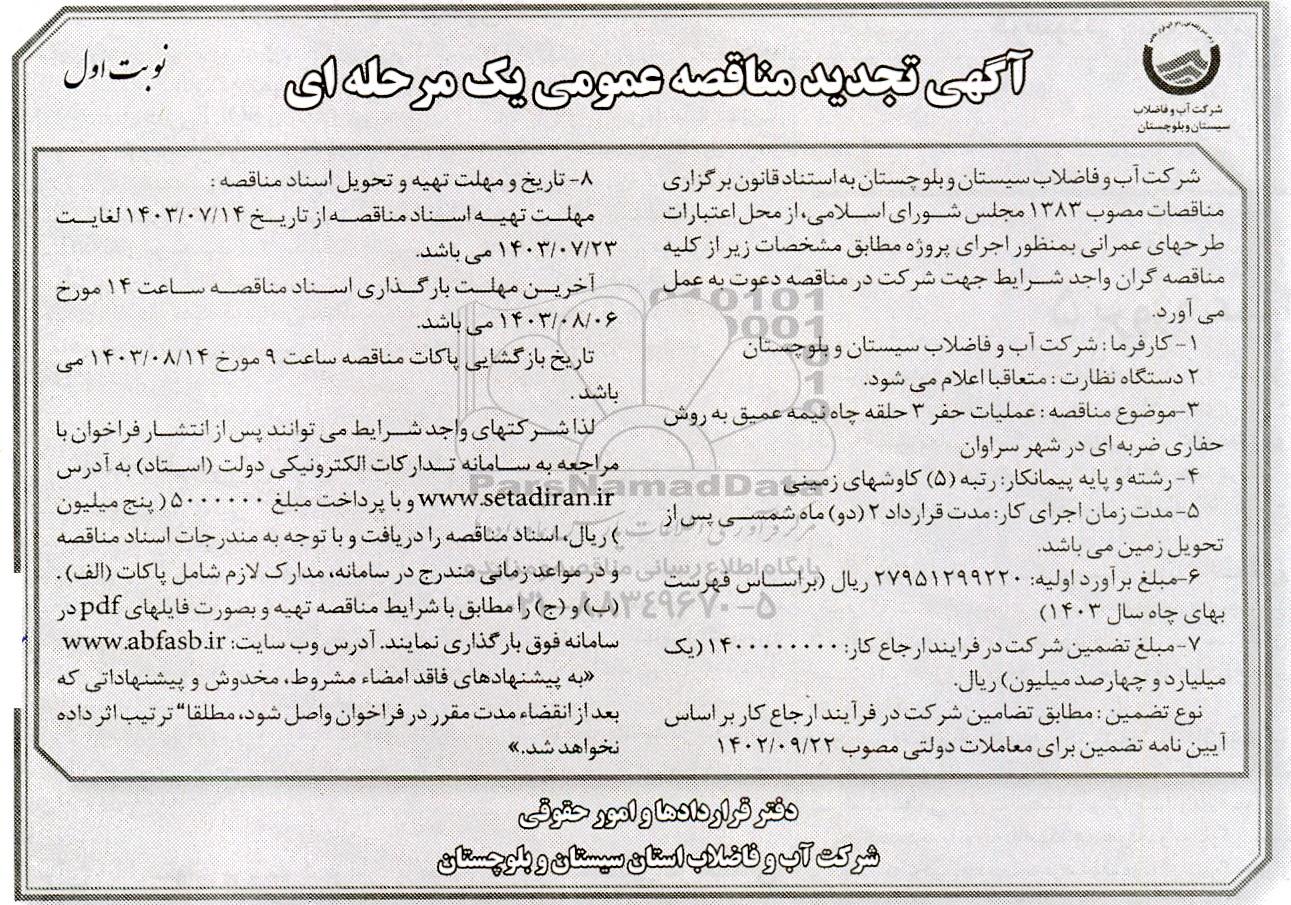 آگهی تجدید مناقصه عمومی یک مرحله ای
نوبت اول
شرکت آب و فاضلاب
سیستان و بلوچستان
شرکت آب و فاضلاب سیستان و بلوچستان به استناد قانون برگزاری
مناقصات مصوب ۱۳۸۳ مجلس شورای اسلامی، از محل اعتبارات
طرحهای عمرانی بمنظور اجرای پروژه مطابق مشخصات زیر از کلیه
مناقصه گران واجد شرایط جهت شرکت در مناقصه دعوت به عمل
می آورد.
۱- کارفرما : شرکت آب و فاضلاب سیستان و بلوچستان
۲ دستگاه نظارت : متعاقبا اعلام می شود.
۳-موضوع مناقصه : عملیات حفر ۳ حلقه چاه نیمه عمیق به روش
حفاری ضربه ای در شهر سراوان
۴- رشته و پایه پیمانکار: رتبه (۵) کاوشهای زمینی
۵-مدت زمان اجرای کار: مدت قرارداد ۲ (دو) ماه شمسی پس از
تحویل زمین می باشد.
۶-مبلغ برآورد اولیه: ۲۷۹۵۱۲۹۹۲۲۰ ریال (براساس فهرست
بهای چاه سال ۱۴۰۳)
۷-مبلغ تضمین شرکت در فرایند ارجاع کار: ۱۴۰۰۰۰۰۰۰۰ (یک
میلیارد و چهارصد میلیون) ریال.
نوع تضمین : مطابق تضامین شرکت در فرآیند ارجاع کار بر اساس
آیین نامه تضمین برای معاملات دولتی مصوب ۱۴۰۲/۰۹/۲۲
۸- تاریخ و مهلت تهیه و تحویل اسناد مناقصه :
مهلت تهیه اسناد مناقصه از تاریخ ۱۴۰۳/۰۷/۱۴ لغایت
۱۴۰۳/۰۷/۲۳ می باشد.
آخرین مهلت بارگذاری اسناد مناقصه ساعت ۱۴ مورخ
۱۴۰۳/۰۸/۰۶ می باشد.
تاریخ بازگشایی پاکات مناقصه ساعت ۹ مورخ ۱۴۰۳/۰۸/۱۴ می
باشد .
لذا شرکتهای واجد شرایط می توانند پس از انتشار فراخوان با
مراجعه به سامانه تدارکات الکترونیکی دولت (استاد) به آدرس
www.setadiran.ir و با پرداخت مبلغ ۵۰۰۰۰۰۰ ( پنج میلیون
) ریال، اسناد مناقصه را دریافت و با توجه به مندرجات اسناد مناقصه
و در مواعد زمانی مندرج در سامانه، مدارک لازم شامل پاکات (الف) .
(ب) و (ج) را مطابق با شرایط مناقصه تهیه و بصورت فایلهای pdf در
سامانه فوق بارگذاری نمایند. آدرس وب سایت: www.abfasb.ir
«به پیشنهادهای فاقد امضاء مشروط، مخدوش و پیشنهاداتی که
بعد از انقضاء مدت مقرر در فراخوان واصل شود، مطلقا“ ترتیب اثر داده
نخواهد شد.»
ParsNamadData
پایگاه اطلاع رسانی مناقصه و مزایده
۰۲۱-۸۸۳۴۹۶۷۰-۵
دفتر قراردادها و امور حقوقی
شرکت آب و فاضلاب استان سیستان و بلوچستان